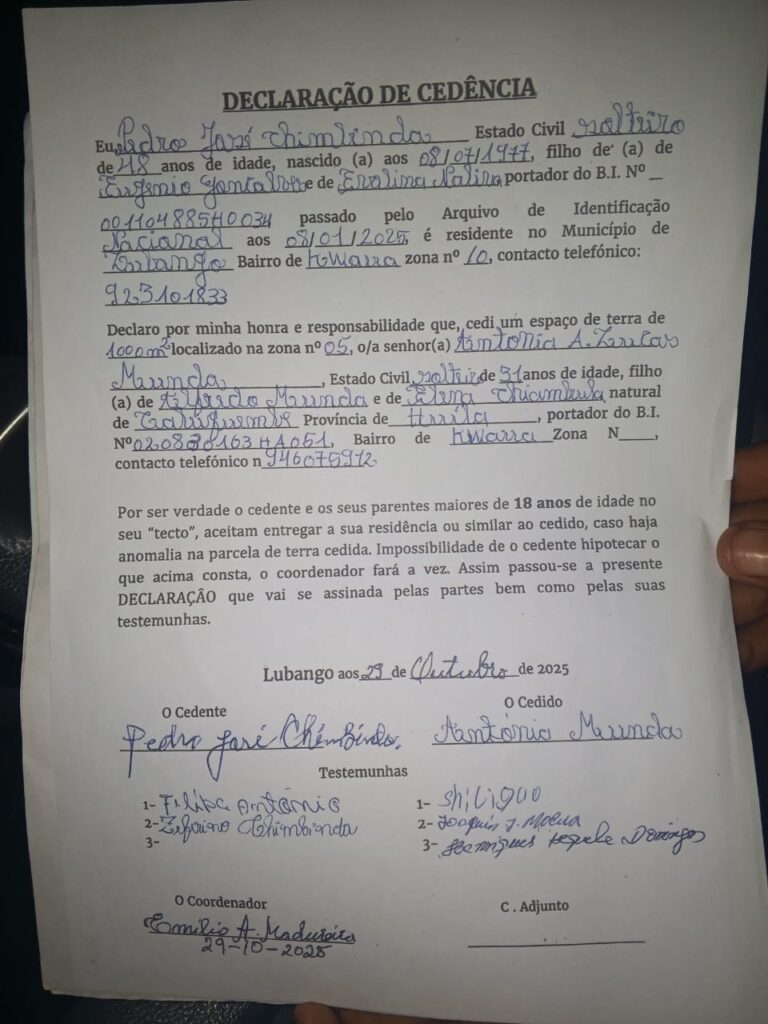 DECLARAÇÃO DE CEDÊNCIA
Eu, Pedro José Chimbinda Estado Civil solteiro
de 48 anos de idade, nascido (a) aos 08/07/1977, filho de (a) de
Eugenio Gonçalves e de Evalina Nalira portador do B.I. Nº
001104885HO034 passado pelo Arquivo de Identificação
Nacional aos 08/01/2025, é residente no Município de
Lubango Bairro de kwarra zona nº 10, contacto telefónico:
923101833
Declaro por minha honra e responsabilidade que, cedi um espaço de terra de
1000m² localizado na zona nº 05, o/a senhor(a) Antonia A.
Munda, Estado Civil solteir de 31 anos de idade, filho
(a) de Alfredo Munda e de Elena natural
de Província de Huíla, portador do B.I.
Nº 0163HA051, Bairro de kwarra Zona N____,
contacto telefónico n 946075912
Por ser verdade o cedente e os seus parentes maiores de 18 anos de idade no
seu “tecto”, aceitam entregar a sua residência ou similar ao cedido, caso haja
anomalia na parcela de terra cedida. Impossibilidade de o cedente hipotecar o
que acima consta, o coordenador fará a vez. Assim passou-se a presente
DECLARAÇÃO que vai se assinada pelas partes bem como pelas suas
testemunhas.
Lubango aos 29 de Outubro de 2025
O Cedente
O Cedido
Pedro José Chimbinda.
Antónia Munda
Testemunhas
1- Filipe António
2- Chimbinda
3-
1- Shiliguo
2- Joaquin J. Moeua
3- Henriques Domingos
O Coordenador
C . Adjunto
Emílio A. Madureira
29-10-2025